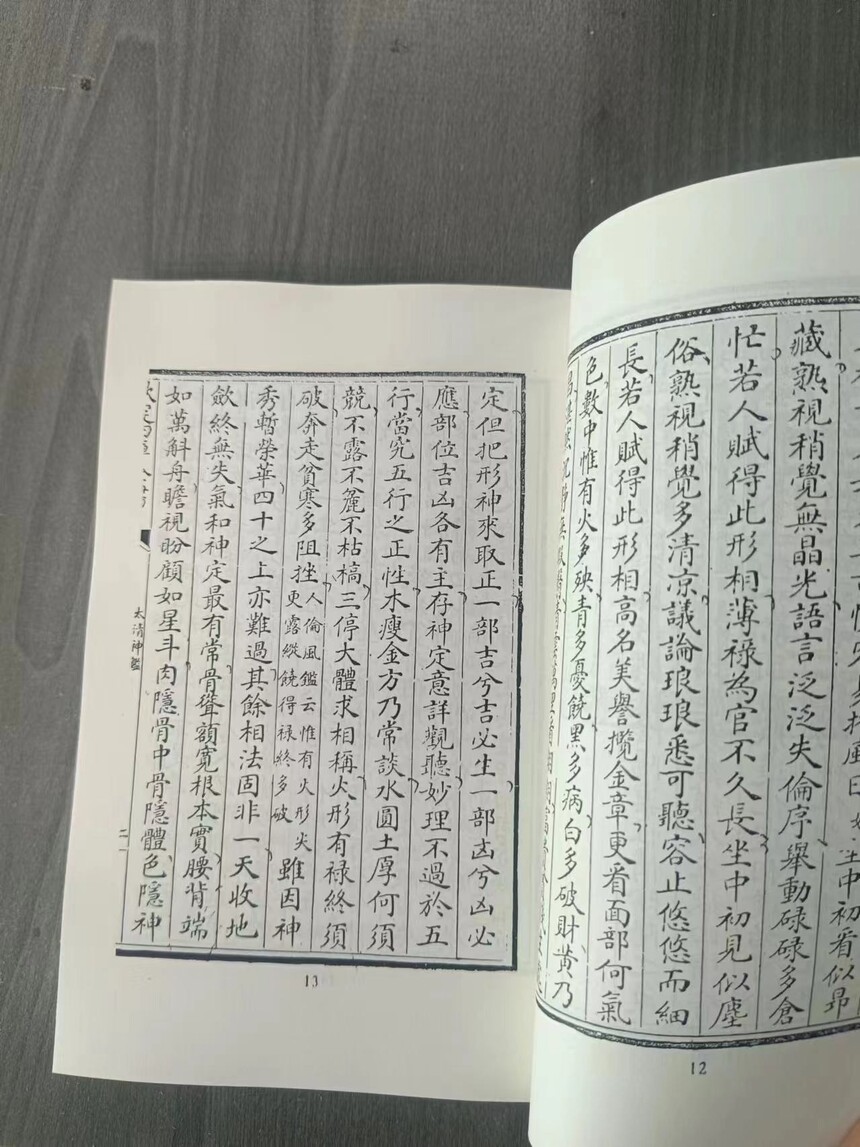 風日如坐中初看似昂
藏熟視稍覺無晶光語言泛泛失倫序舉動碌碌多倉
忙若人賦得此形相薄禄為官不久長坐中初見似塵
俗熟視稍覺多清凉議論琅琅悉可聽容止悠悠而細
長若人賦得此形相高名美譽攬金章更看面部何氣
色數中惟有火多殃青多憂饒黑多病白多破財黄乃
12
定但把形神來取正一部吉兮吉必生一部凶兮凶必
應部位吉凶各有主存神定意詳觀聽妙理不過於五
行當究五行之正性木瘦金方乃常談水圓土厚何須
競不露不麄不枯槁三停大體求相稱火形有禄終須
破奔走貧寒多阻挫人倫風鑑云惟有火形尖更露縱饒得禄終多破雖因神
秀暫榮華四十之上亦難過其餘相法固非一天收地
歛終無失氣和神定最有常骨聳額寛根本實腰背端
如萬斛舟瞻視盼顧如星斗肉隠骨中骨隠體色隠神
太清神鑑
13